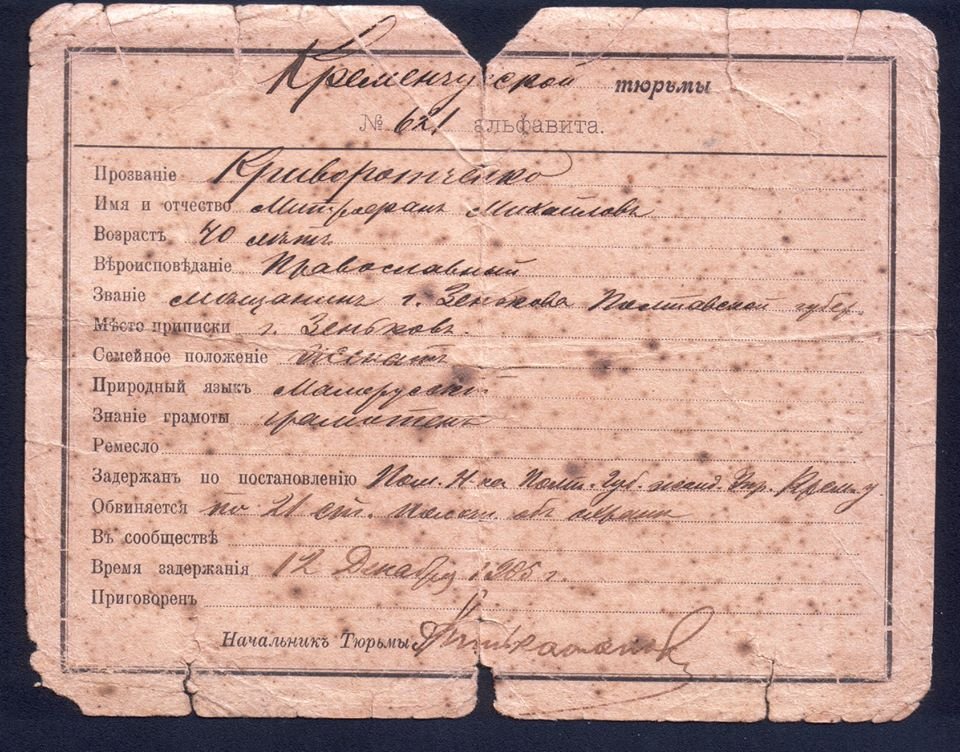 Кременчугской тюрьмы
№ 621 алфавита.
Прозваніе Криворотченко
Имя и отчество Митрофанъ Михайловъ
Возрастъ 40 лѣтъ
Вѣроисповѣданіе Православный
Званіе мѣщанинъ г. Зенькова Полтавской губер.
Мѣсто приписки г. Зеньковъ.
Семейное положеніе женатъ
Природный языкъ Малорусскій
Знаніе грамоты грамотенъ
Ремесло
Задержан по постановленію Пом. Н-ка Полт. Губ. жанд. Упр. Крем. у
Обвиняется по 21 ст. полож. объ охранѣ
Въ сообществѣ
Время задержанія 12 Декабря 1905 г.
Приговоренъ
Начальникъ Тюрьмы